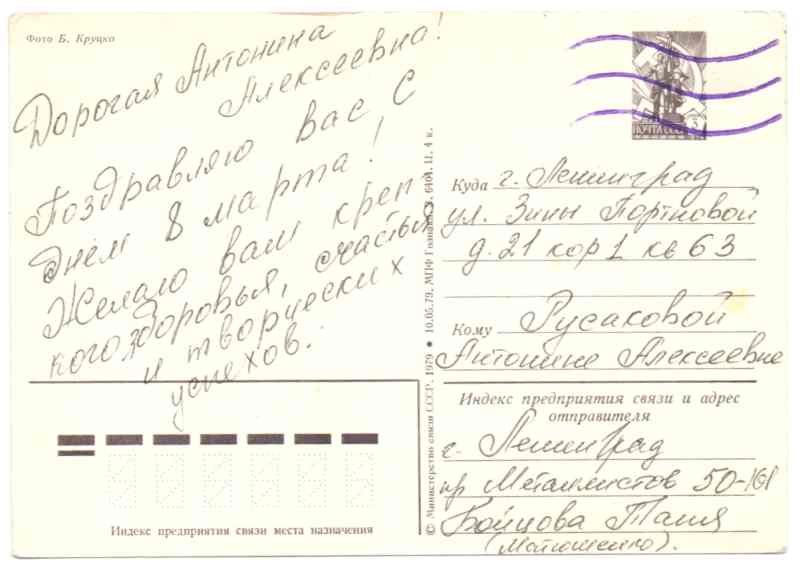 Фото Б. Круцко
Дорогая Антонина
Алексеевна!
Поздравляю вас с
днём 8 марта!
Желаю вам креп-
кого здоровья, счастья
и творческих
успехов.
ПОЧТА СССР
Куда г. Ленинград
ул. Зины Портновой
д. 21 кор 1 кв 63
Кому Русаковой
Антонине Алексеевне
Индекс предприятия связи и адрес
отправителя
г. Ленинград
пр Металлистов 50-161
Бойцова Таня
(Матюшенко).
Индекс предприятия связи места назначения
© Министерство связи СССР. 1979 • 10.05.79. МПФ Гознака. 4 к.